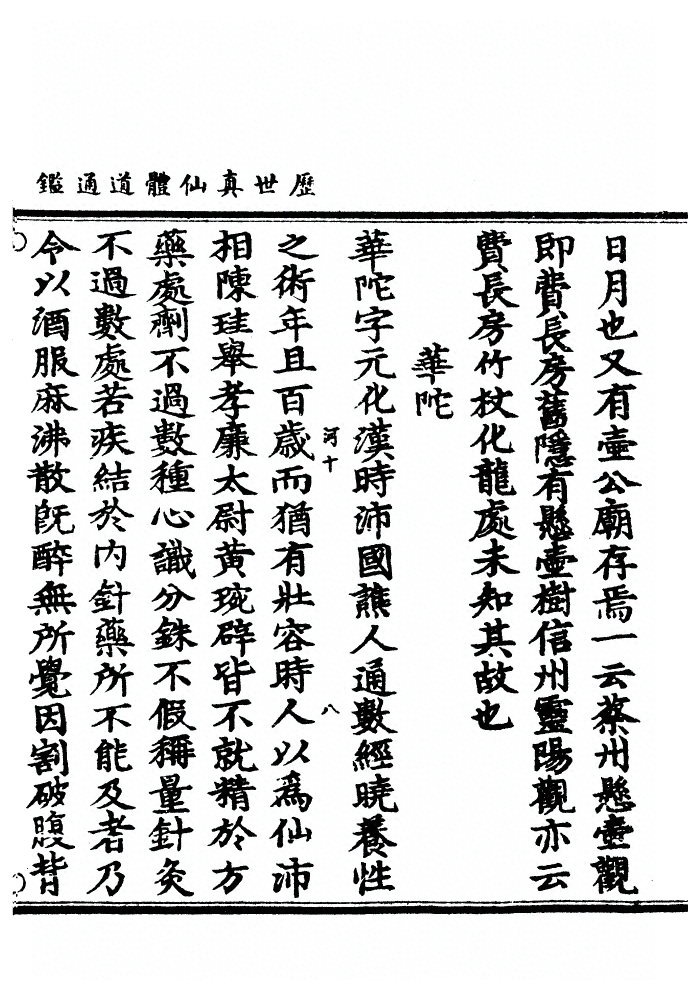 歷世真仙體道通鑑
日月也又有壷公廟存焉一云蔡州懸壷觀
即費長房舊隱有懸壷樹信州靈陽觀亦云
費長房竹杖化龍處未知其故也
華陀
華陀字元化漢時沛國譙人通數經曉養性
河十
八
之術年且百歲而猶有壯容時人以為仙沛
相陳珪舉孝廉太尉黃琬辟皆不就精於方
藥處劑不過數種心識分銖不假稱量針灸
不過數處若疾結於內針藥所不能及者乃
令以酒服麻沸散旣醉無所覺因割破腹背